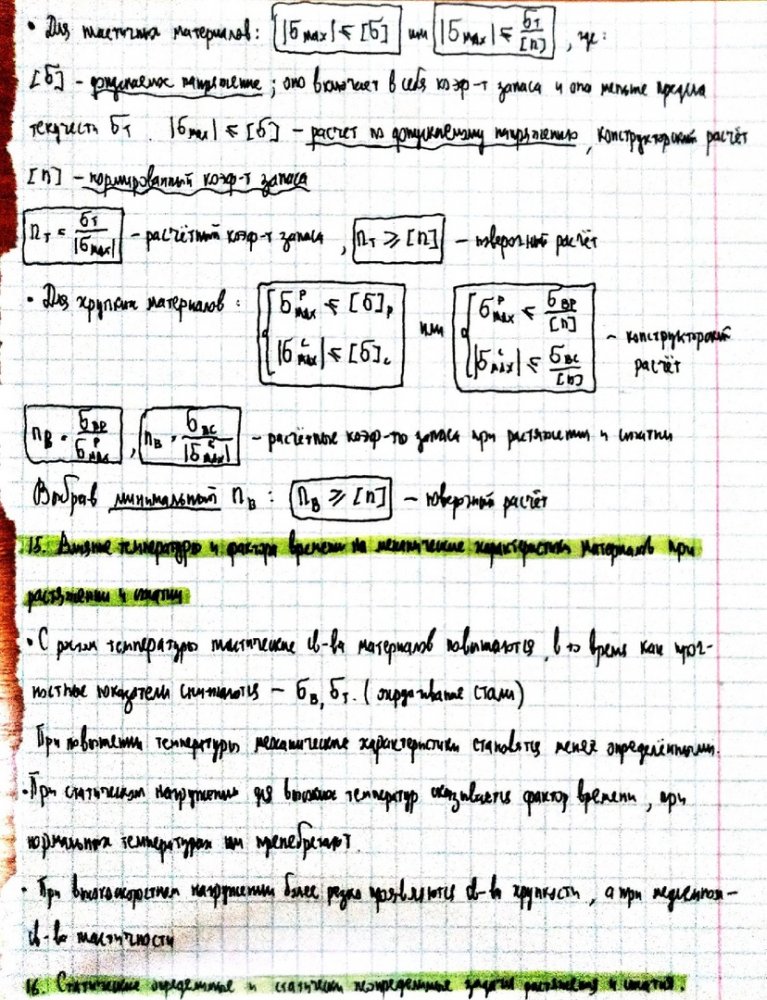 • Для пластичных материалов: |σmax| ≤ [σ] или |σmax| ≤ σт/[n], где:
[σ] - допускаемое напряжение; оно включает в себя коэф-т запаса и оно меньше предела
текучести σт. |σmax| ≤ [σ] - расчёт по допускаемому напряжению, конструкторский расчёт
[n] - нормированный коэф-т запаса
nт = σт/|σmax| - расчётный коэф-т запаса, nт ≥ [n] - поверочный расчёт
• Для хрупких материалов: { σᴾmax ≤ [σ]р ; |σᶜmax| ≤ [σ]с или { σᴾmax ≤ σвр/[n] ; |σᶜmax| ≤ σвс/[n] - конструкторский
расчёт
nв = σвр/σᴾmax, nв = σвс/|σᶜmax| - расчётные коэф-ты запаса при растяжении и сжатии
Выбрав минимальный nв: nв ≥ [n] - поверочный расчёт
15. Влияние температуры и фактора времени на механические характеристики материалов при
растяжении и сжатии
• С ростом температуры пластические св-ва материалов повышаются, в то время как проч-
ностные показатели снижаются - σв, σт. ( стали)
При повышении температуры механические характеристики становятся менее определёнными.
• При статическом нагружении для высоких температур сказывается фактор времени, при
нормальных температурах им пренебрегают.
• При высокоскоростном нагружении более резко проявляются св-ва хрупкости, а при медленном -
св-ва пластичности
16. Статические определимые и статически неопределимые задачи растяжения и сжатия.